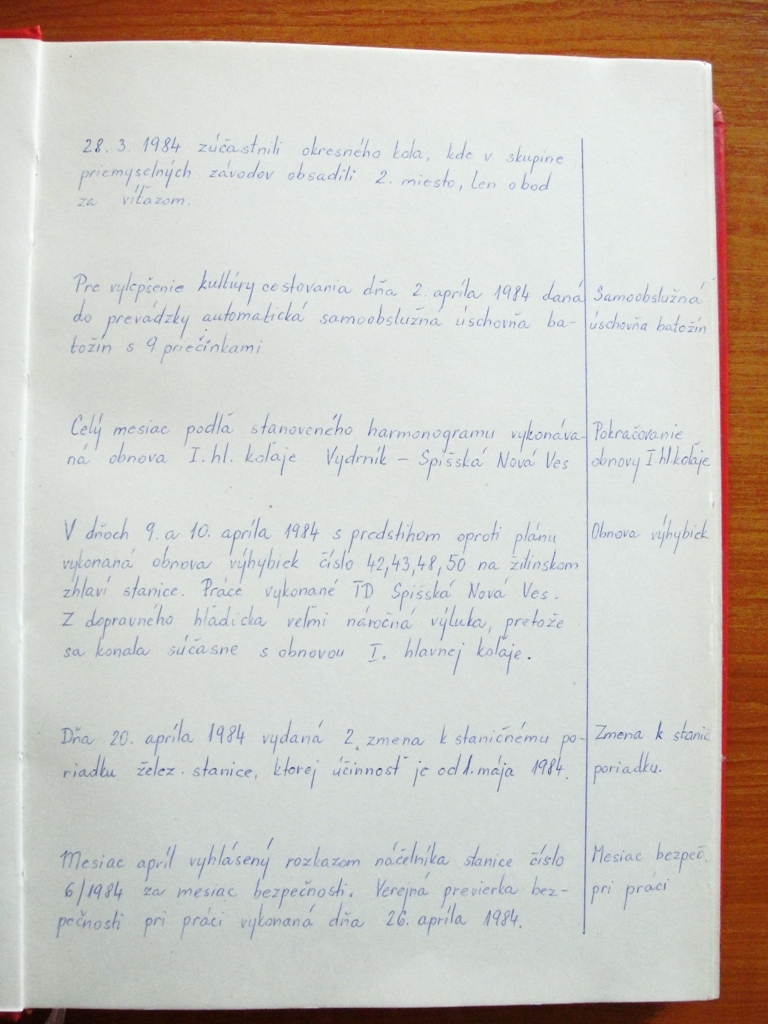 28. 3. 1984 zúčastnili okresného kola, kde v skupine
priemyselných závodov obsadili 2. miesto, len o bod
za víťazom.
Pre vylepšenie kultúry cestovania dňa 2. apríla 1984 daná
do prevádzky automatická samoobslužná úschovňa ba-
tožín s 9 priečinkami
Samoobslužná
úschovňa batožín
Celý mesiac podľa stanoveného harmonogramu vykonáva-
ná obnova I. hl. koľaje Vydrník – Spišská Nová Ves
Pokračovanie
obnovy I hl.koľaje
V dňoch 9. a 10. apríla 1984 s predstihom oproti plánu
vykonaná obnova výhybiek číslo 42,43,48,50 na žilinskom
zhlaví stanice. Práce vykonané TD Spišská Nová Ves.
Z dopravného hľadiska veľmi náročná výluka, pretože
sa konala súčasne s obnovou I. hlavnej koľaje.
Obnova výhybiek
Dňa 20. apríla 1984 vydaná 2. zmena k staničnému po-
riadku želez. stanice, ktorej účinnosť je od 1. mája 1984.
Zmena k stanič
poriadku.
Mesiac apríl vyhlásený rozkazom náčelníka stanice číslo
6/1984 za mesiac bezpečnosti. Verejná previerka bez-
pečnosti pri práci vykonaná dňa 26. apríla 1984.
Mesiac bezpeč.
pri práci